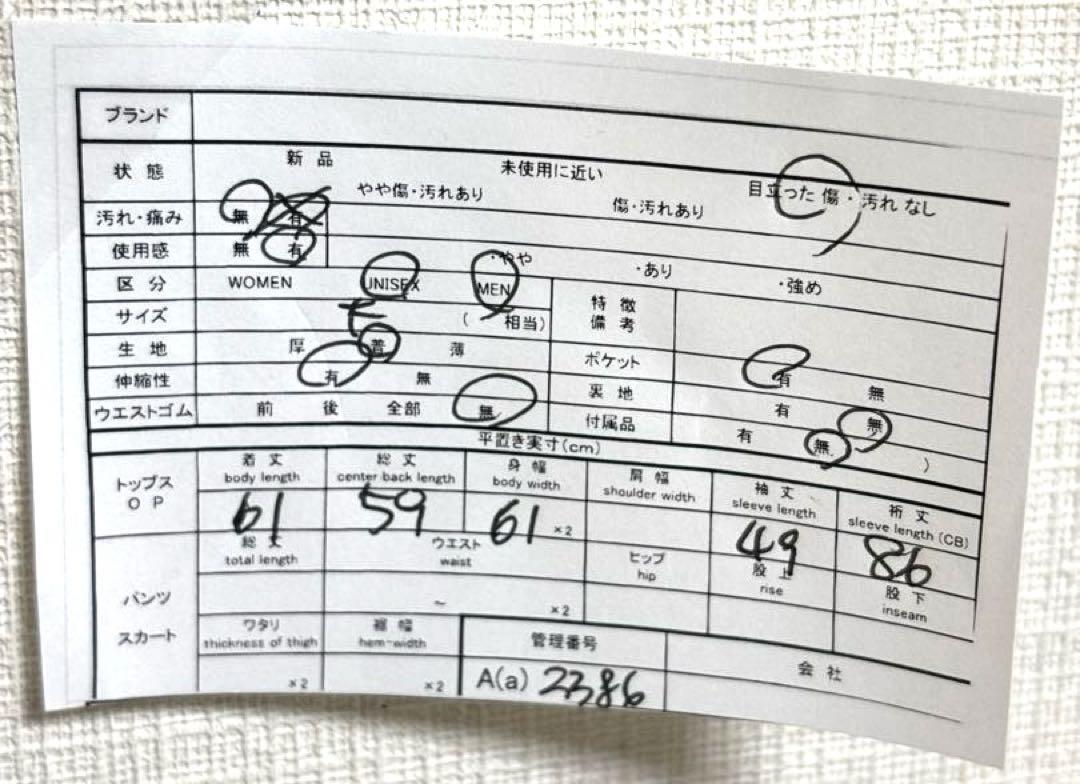 ブランド
状態 新品 未使用に近い 目立った傷・汚れなし
やや傷・汚れあり 傷・汚れあり
汚れ・痛み 無 有
使用感 無 有 ・やや ・あり ・強め
区分 WOMEN UNISEX MEN 特徴備考
サイズ ( 相当)
生地 厚 普 薄 ポケット 有 無
伸縮性 有 無 裏地 有 無
ウエストゴム 前 後 全部 無 付属品 有 無 )
平置き実寸(cm)
トップス 着丈 総丈 身幅 肩幅 袖丈 裄丈
OP body length center back length body width shoulder width sleeve length sleeve length (CB)
61 59 61 ×2 49 86
総丈 ウエスト ヒップ 股上 股下
total length waist hip rise inseam
パンツ ~ ×2
スカート ワタリ 裾幅 管理番号 会社
thickness of thigh hem-width
×2 ×2 A(a) 2386